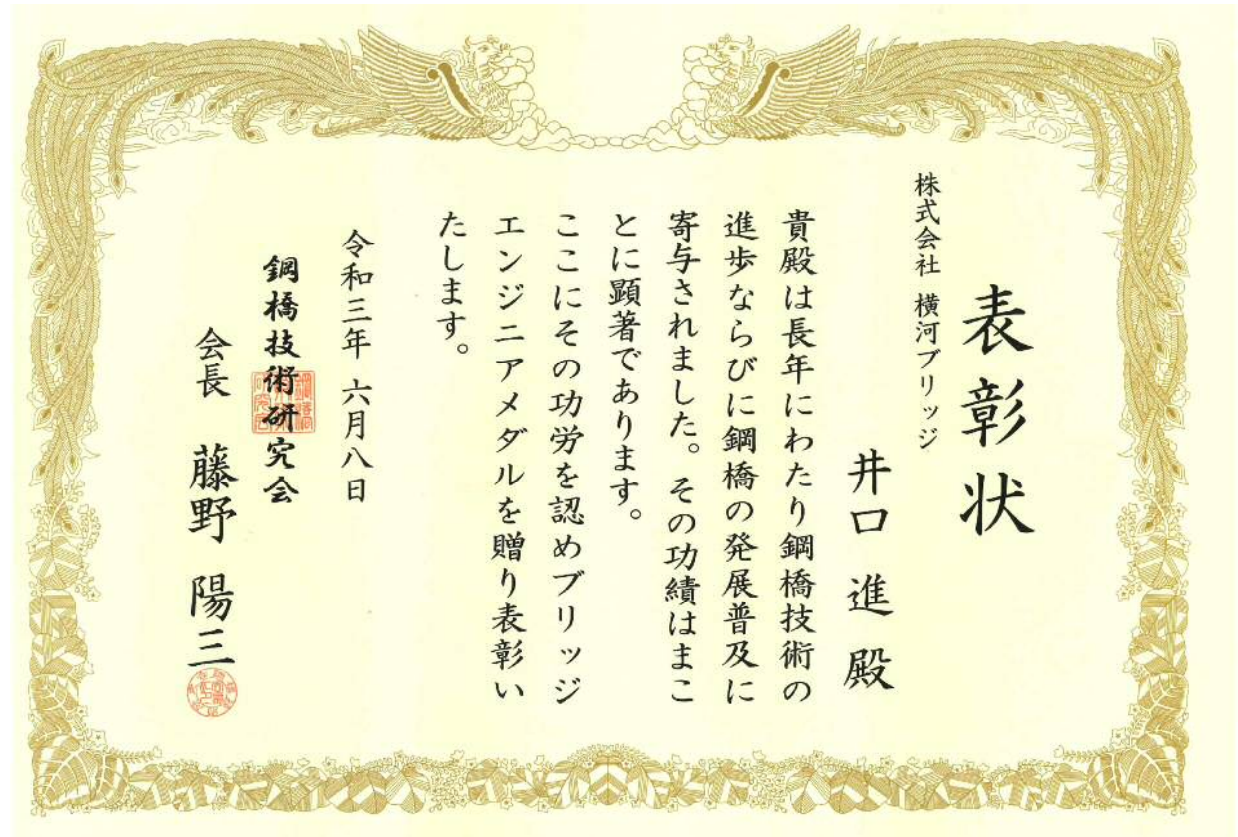 表彰状
株式会社 横河ブリッジ
井口 進 殿
貴殿は長年にわたり鋼橋技術の
進歩ならびに鋼橋の発展普及に
寄与されました。その功績はまこ
とに顕著であります。
ここにその功労を認めブリッジ
エンジニアメダルを贈り表彰い
たします。
令和三年 六月八日
鋼橋技術研究会
会長 藤野 陽三